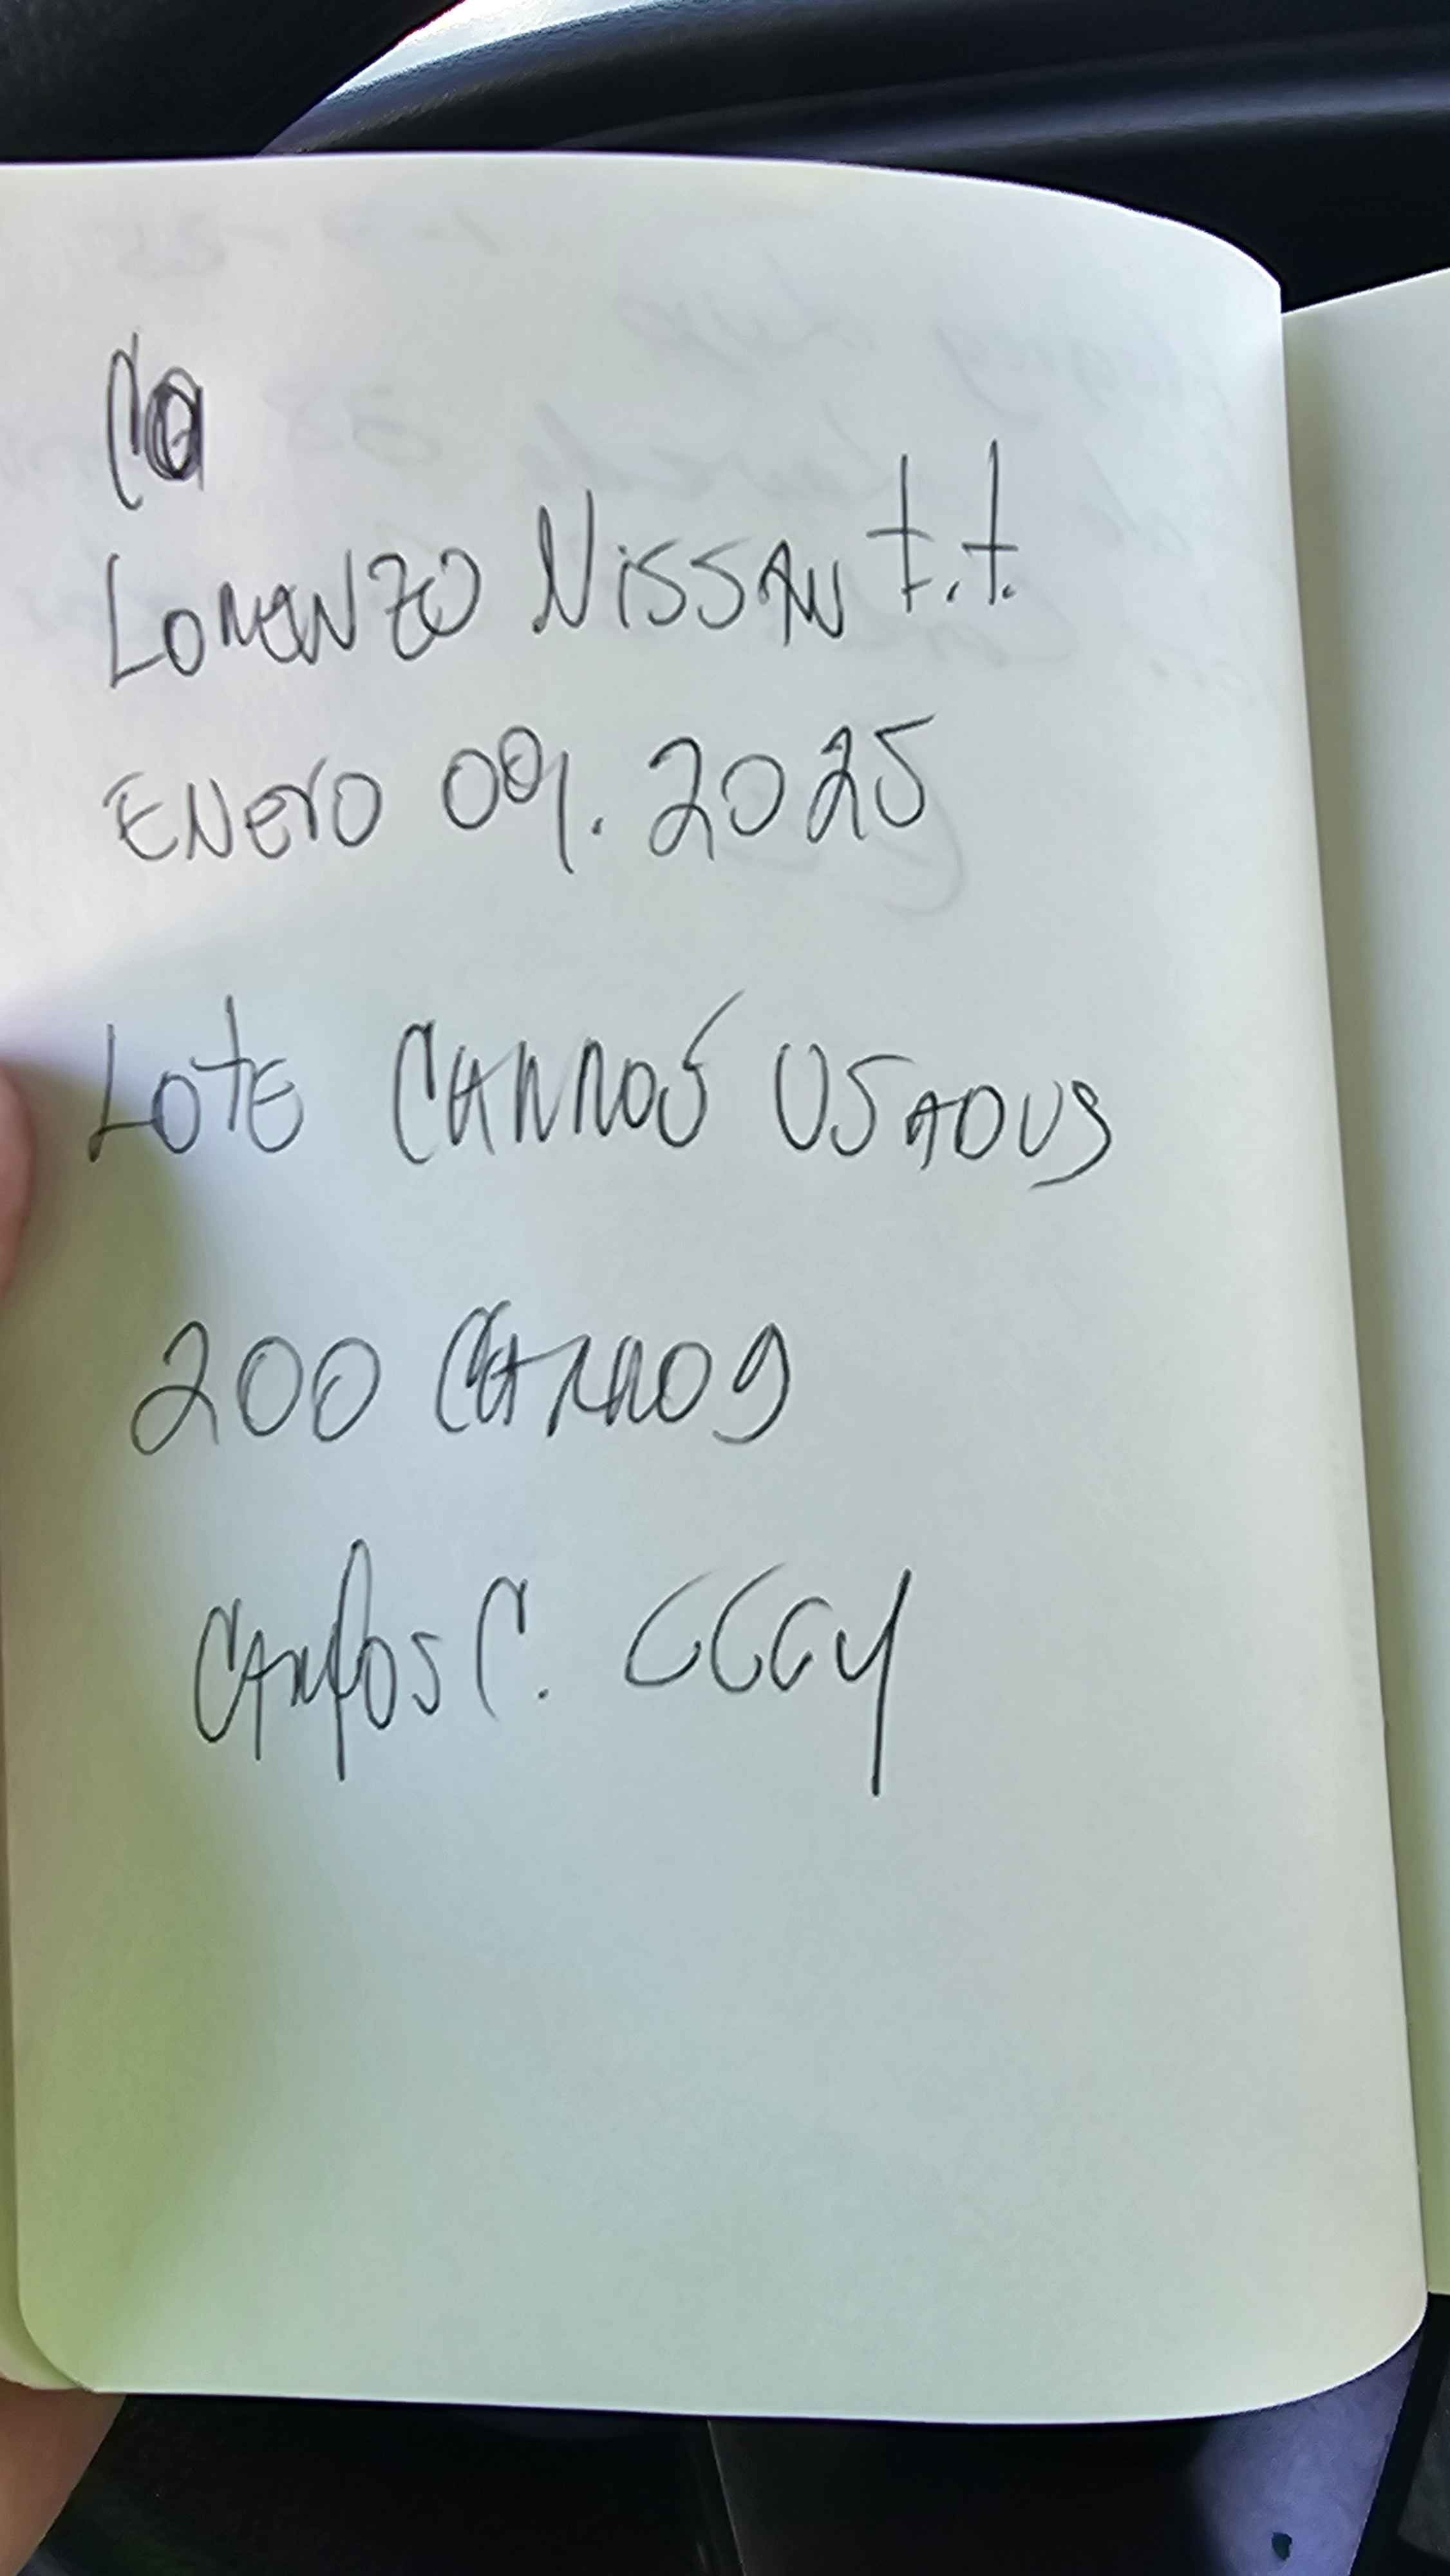 LORENZO NISSAN t.t.
ENERO 09. 2025
LOTE CARROS USADOS
200 CARROS
CARLOS C.